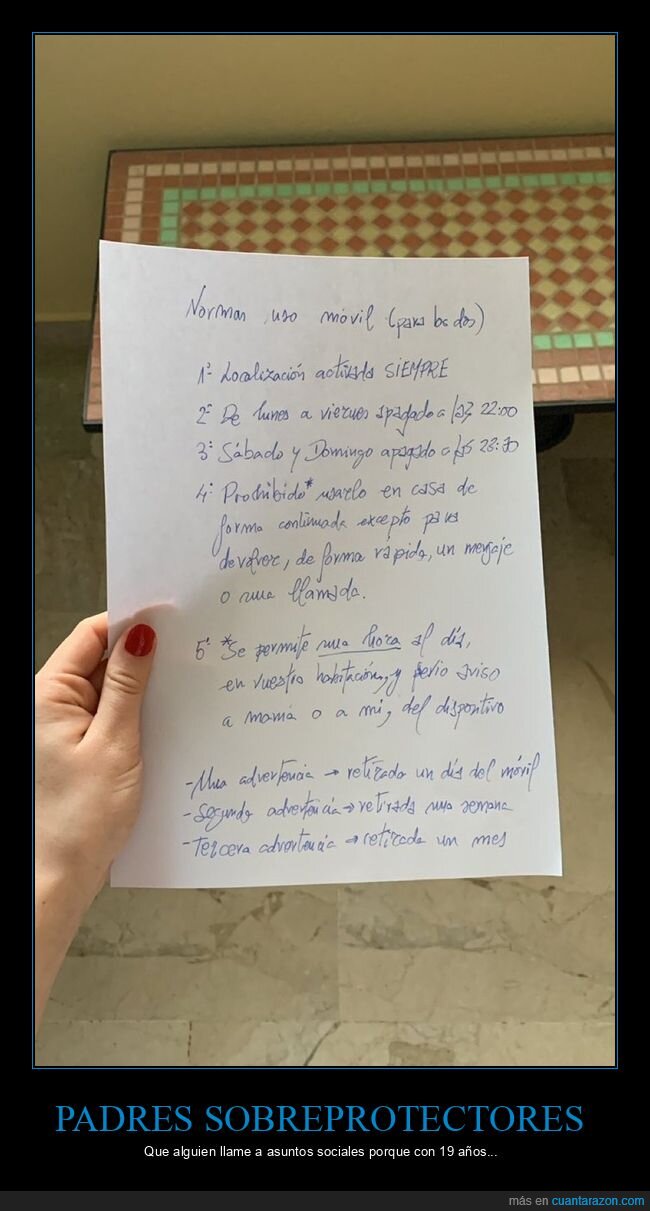 Normas uso móvil (para los dos)
1ª Localización activada SIEMPRE
2ª De lunes a viernes apagado a las 22:00
3ª Sábado y Domingo apagado a las 23:30
4ª Prohibido* usarlo en casa de
forma continuada excepto para
devolver, de forma rápida, un mensaje
o una llamada.
5ª *Se permite una hora al día,
en vuestra habitación, y previo aviso
a mamá o a mi, del dispositivo
-Una advertencia → retirada un día del móvil
-Segunda advertencia → retirada una semana
-Tercera advertencia → retirada un mes
PADRES SOBREPROTECTORES
Que alguien llame a asuntos sociales porque con 19 años...
más en cuantarazon.com